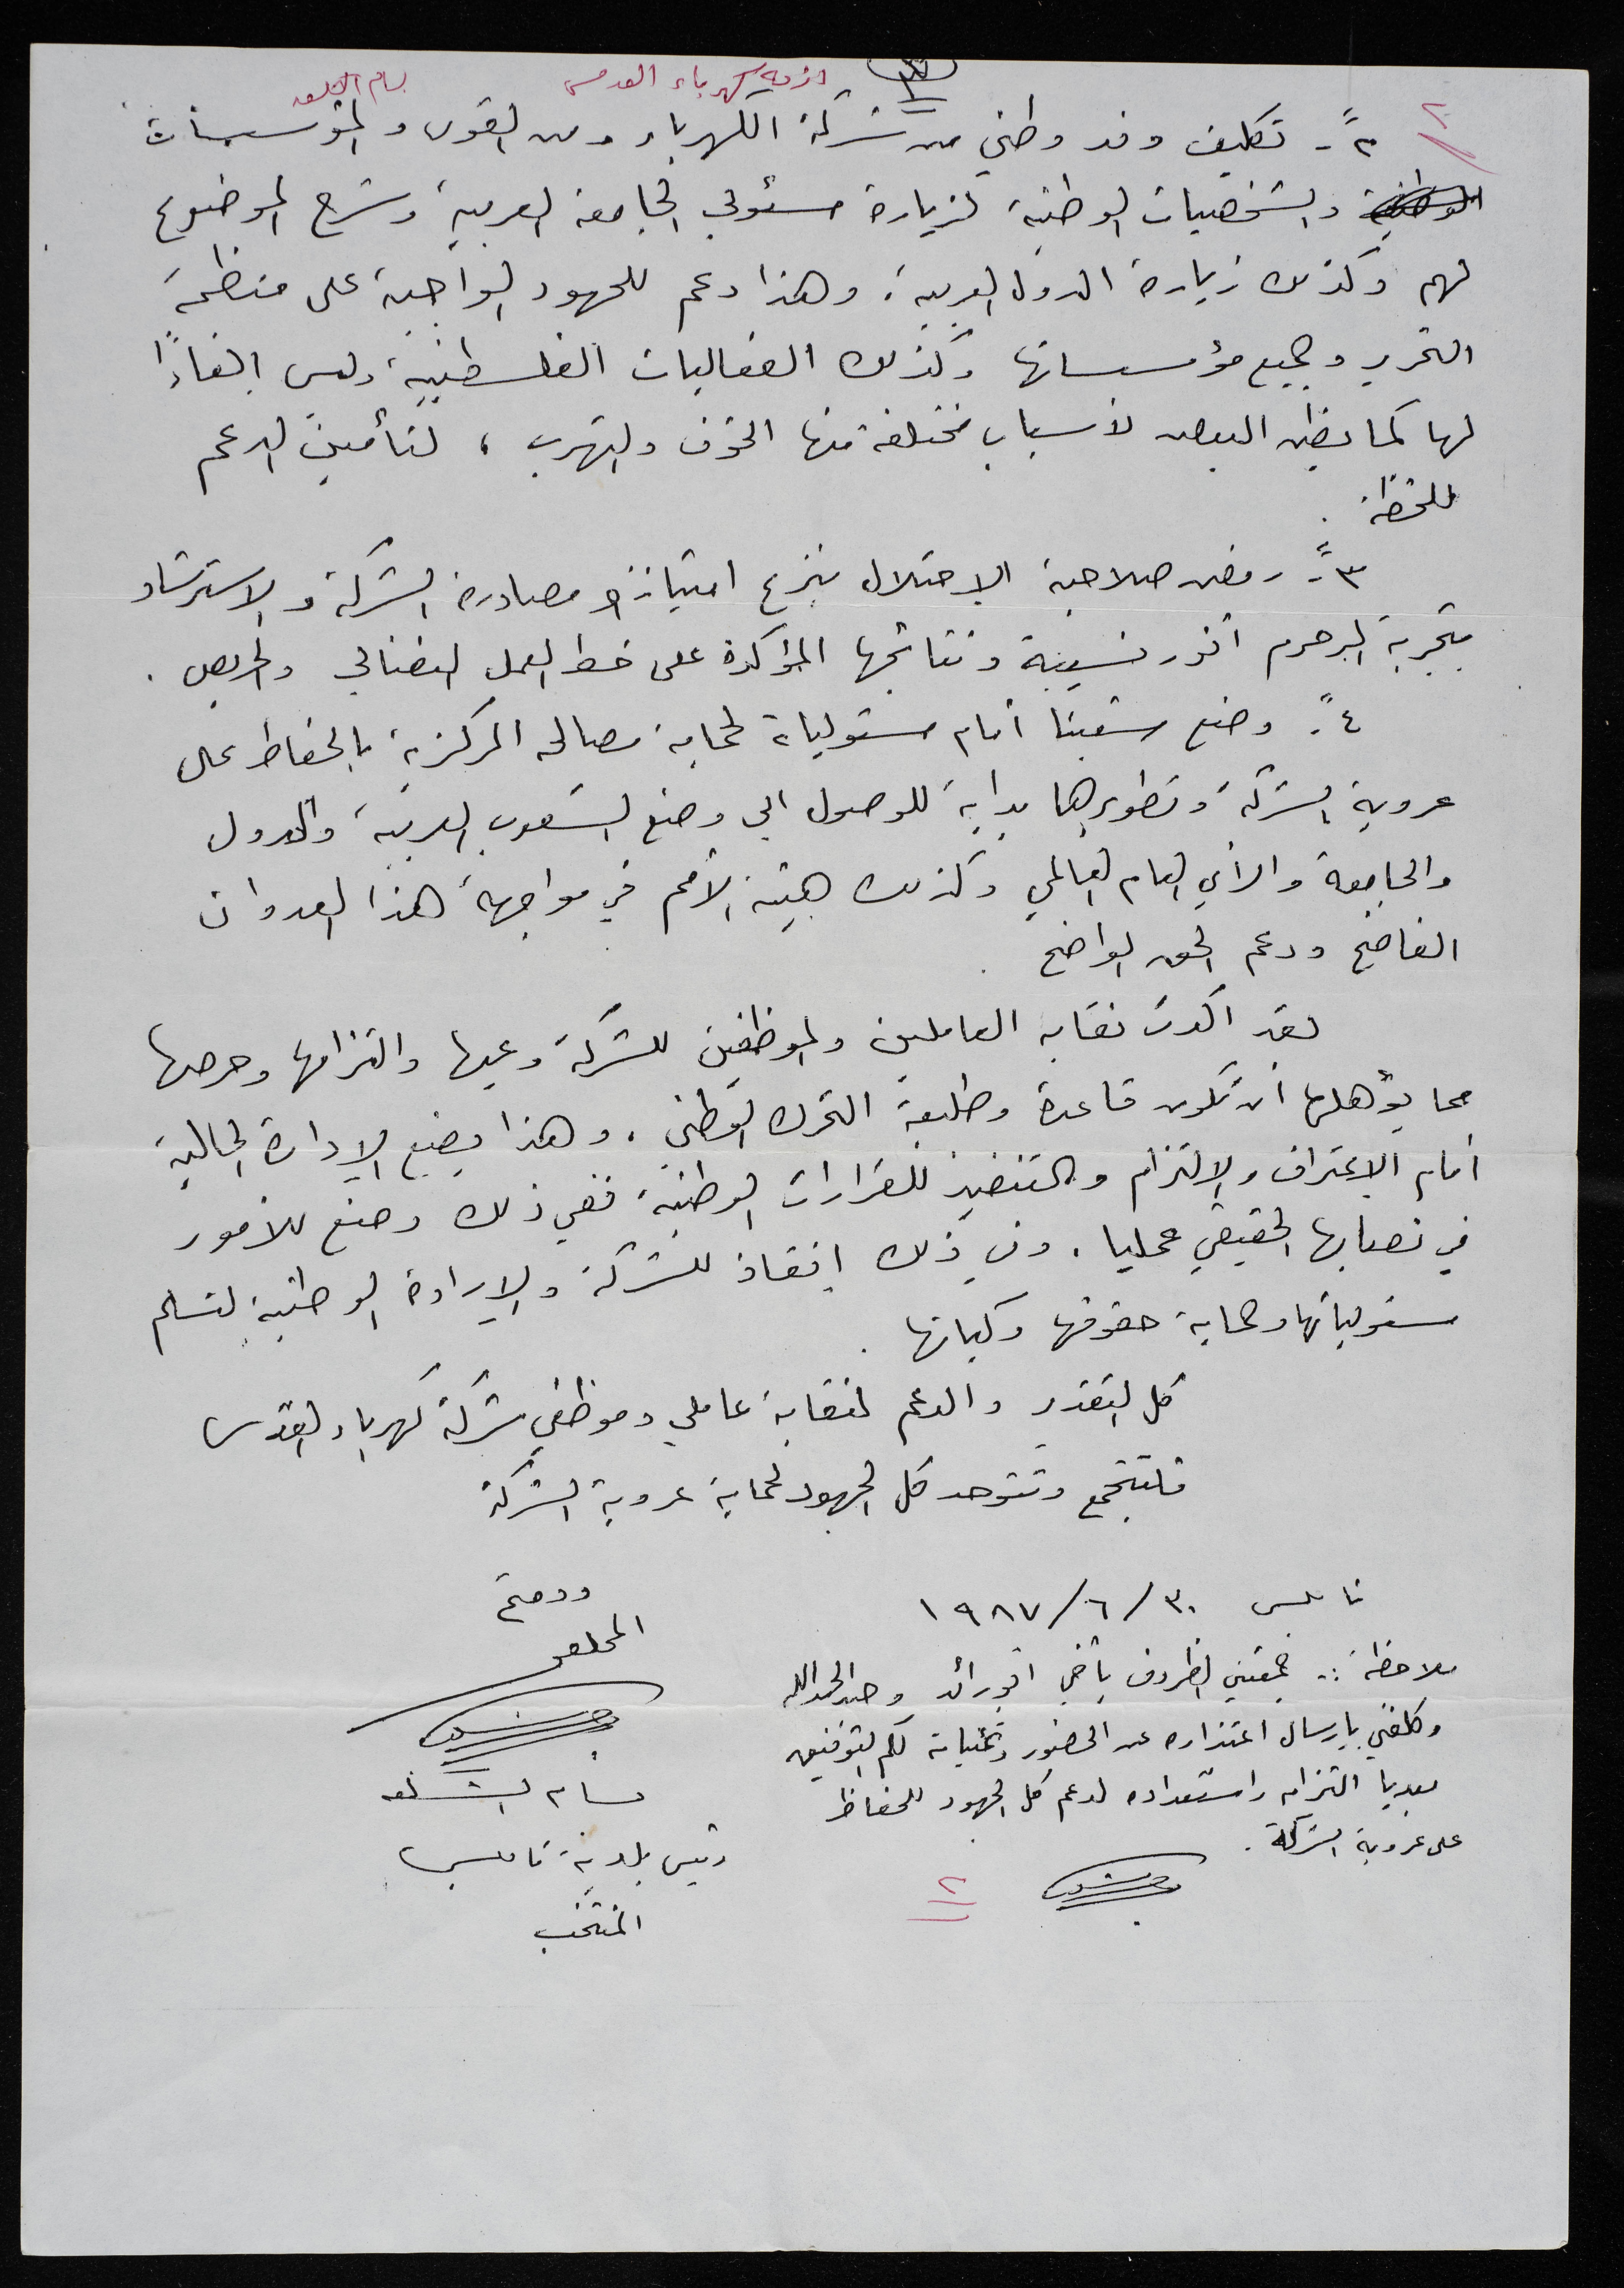 ازمة كهرباء القدس
بسام الشكعه
٢
٢ً- تكليف وفد وطني من شركة الكهرباء ومن القوى والمؤسسات
والشخصيات الوطنية لزيارة مسئولي الجامعة العربية وشرح الموضوع
لهم وكذلك زيارة الدول العربية. وهذا دعم للجهود الواجبة على منظمة
التحرير وجميع مؤسساتها وكذلك الفعاليات الفلسطينية وليس الغاءًا
لها كما يظن البعض لأسباب مختلفة منها الخوف والتهرب، لتأمين الدعم
للخطة.
٣ً- رفض صلاحية الاحتلال بنزع امتياز و مصادرة الشركة والاسترشاد
بتجربة المرحوم انور نسيبة ونتائجها المؤكدة على خط العمل النضالي والحريص.
٤ً- وضع شعبنا أمام مسئولياته لحماية مصالحه المركزية بالحفاظ على
عروبة الشركة وتطويرها بداية للوصول الى وضع الشعوب العربية والدول
والجامعة والرأي العام العالمي وكذلك هيئة الأمم في مواجهة هذا العدوان
الفاضح ودعم الحق الواضح.
لقد اكدت نقابة العاملين والموظفين للشركة وعيها والتزامها وحرصها
مما يؤهلها أن تكون قاعدة وطليعة التحرك الوطني. وهذا يضع الإدارة الحالية
أمام الاعتراف والالتزام والتنفيذ للقرارات الوطنية ففي ذلك وضع للأمور
في نصابها الحقيقي عمليا. وفي ذلك إنقاذ للشركة والإرادة الوطنية لتسلم
مسئولياتها وحماية حقوقها وكيانها.
كل التقدير والدعم لنقابة عاملي وموظفي شركة كهرباء القدس
فلتتجمع وتتوحد كل الجهود لحماية عروبة الشركة
نابلس ٣٠/٦/١٩٨٧
ودمتم
المخلص
بسام الشكعه
رئيس بلدية نابلس
المنتخب
ملاحظة :- جمعتني الظروف بأخي ابو رائد وحيد الحمدالله
وكلفني بإرسال اعتذاره عن الحضور وتمنياته لكم التوفيق
مبديا التزامه واستعداده لدعم كل الجهود للحفاظ
على عروبة الشركة.
٢